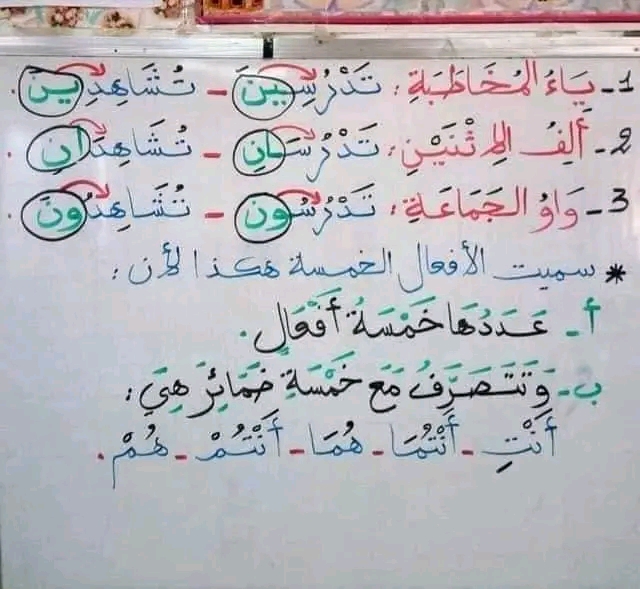 1- يَاءُ المُخَاطَبَةِ: تَدْرُسِينَ - تُشَاهِدِينَ.
2- أَلِفُ الِاثْنَيْنِ: تَدْرُسَانِ - تُشَاهِدَانِ.
3- وَاوُ الجَمَاعَةِ: تَدْرُسُونَ - تُشَاهِدُونَ.
* سميت الأفعال الخمسة هكذا لأن:
أ- عَدَدُهَا خَمْسَةُ أَفْعَالٍ.
ب- وَتَتَصَرَّفُ مَعَ خَمْسَةِ ضَمَائِرَ هِيَ:
أَنْتِ - أَنْتُمَا - هُمَا - أَنْتُمْ - هُمْ.